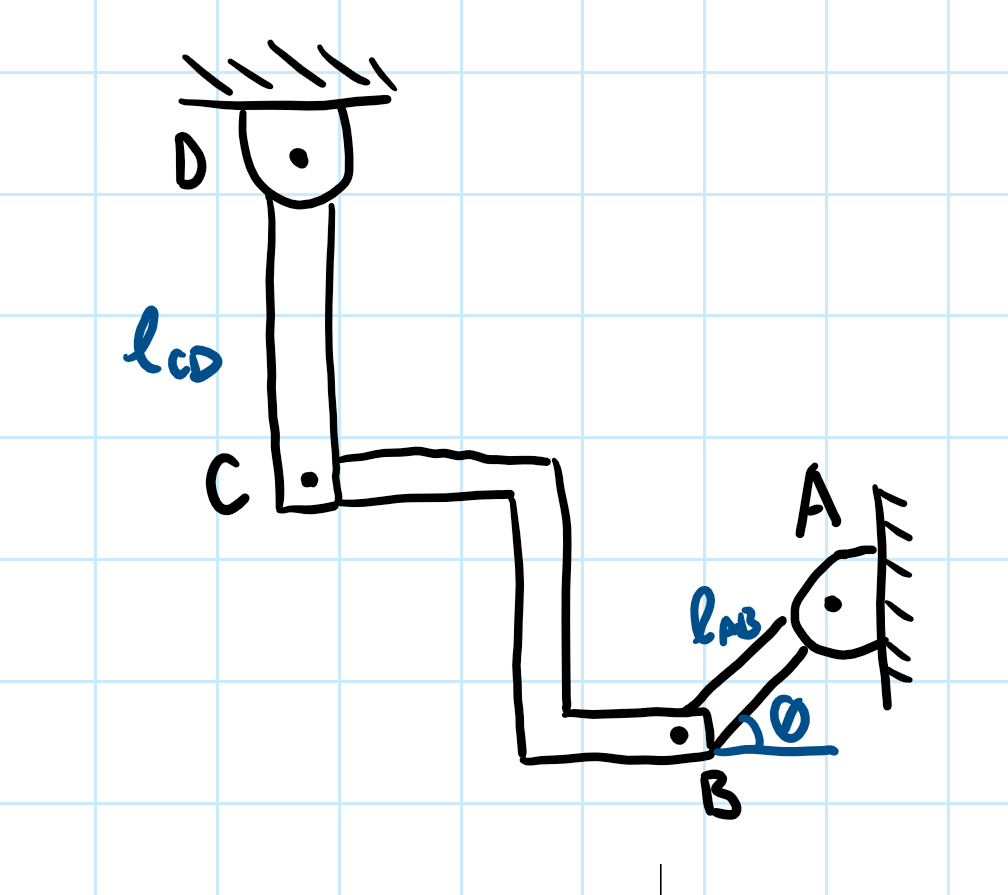 D
l_CD
C
A
l_AB
θ
B